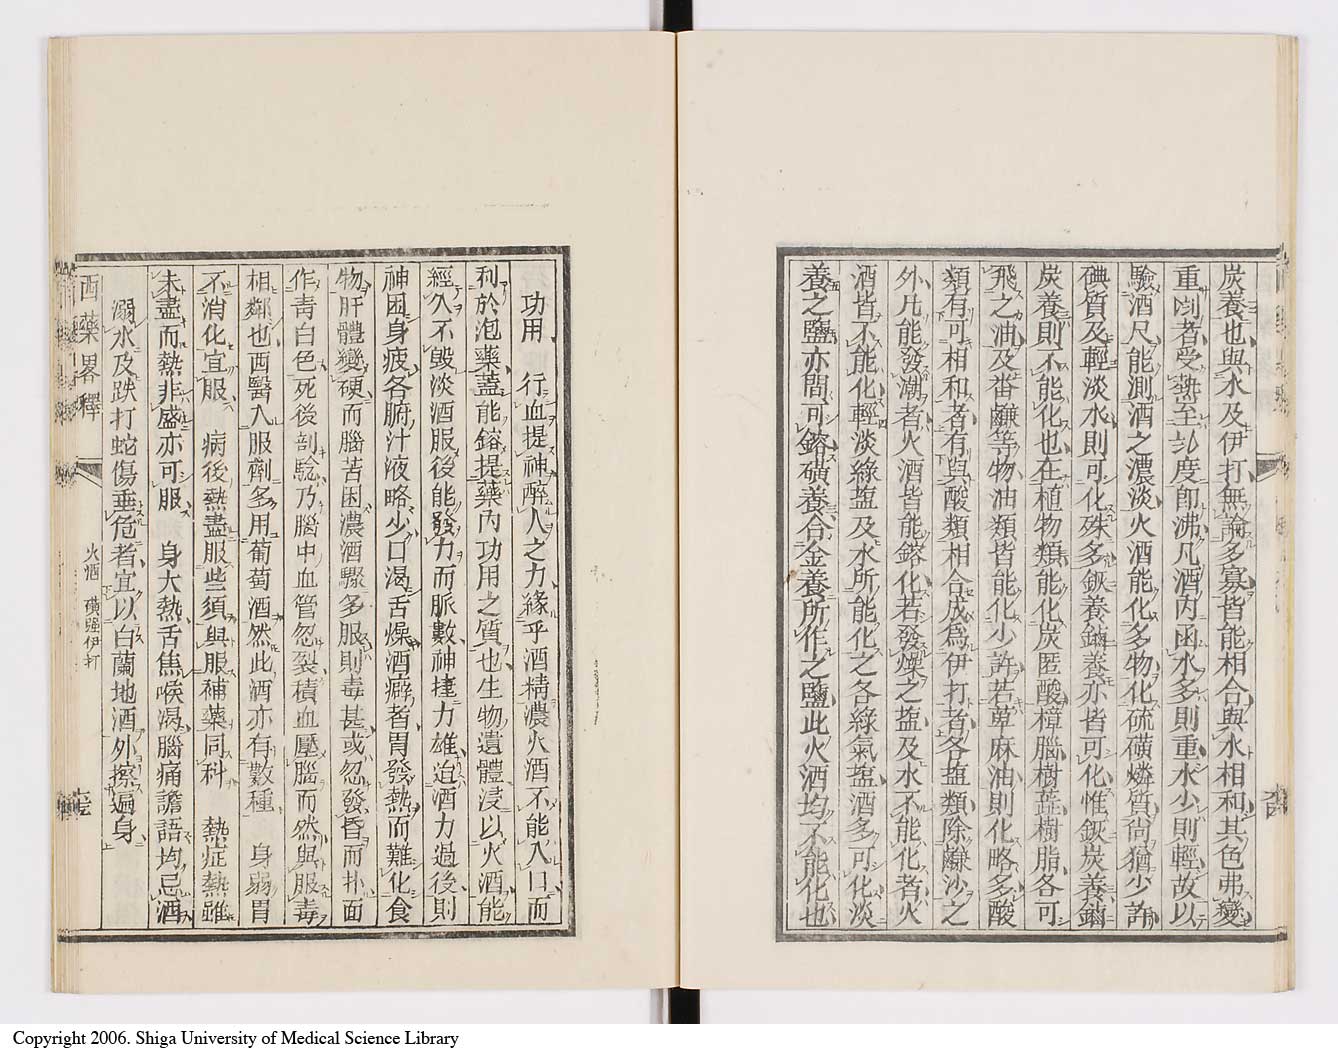 炭養也與水及伊打無論多寡皆能相合與水相和其色弗變
重者受熱至度卽沸凡酒內函水多則重水少則輕故以
驗酒尺能測酒之濃淡火酒能化多物化硫磺燐質尚猶少許
碘質及輕淡水則可化殊多鋏養鏀養亦皆可化惟鋏炭養鏀
炭養則不能化也在植物類能化炭匿酸樟腦樹蔬樹脂各可
飛之油及番鹻等物油類皆能化少許若萆麻油則化略多酸
類有可相和者有與酸類相合成爲伊打者各塩類除鹻沙之
外凡能發潮者火酒皆能鎔化若發燥之塩及水不能化者火
酒皆不能化輕淡綠塩及水所能化之各綠氣塩酒多可化淡
養之鹽亦間可鎔磺養合金養所作之鹽此火酒均不能化也
功用 行血提神醉人之力緣乎酒精濃火酒不能入口而
利於泡藥蓋能鎔提藥內功用之質也生物遺體浸以火酒能
經久不毀淡酒服後能發力而脈數神捷力雄迨酒力過後則
神困身疲各腑汁液略少口渴舌燥酒癖者胃發熱而難化食
物肝體變硬而腦苦困濃酒驟多服則毒甚或忽發昏而扑面
作靑白色死後剖驗乃腦中血管忽裂積血壓腦而然與服毒
相鄰也西醫入服劑多用葡萄酒然此酒亦有數種 身弱胃
不消化宜服 病後熱盡服些須與服補藥同科 熱症熱雖
未盡而熱非盛亦可服 身大熱舌焦喉渴腦痛譫語均忌酒
溺水及跌打蛇傷垂危者宜以白蘭地酒外擦遍身
西藥畧釋
火酒 磺强伊打